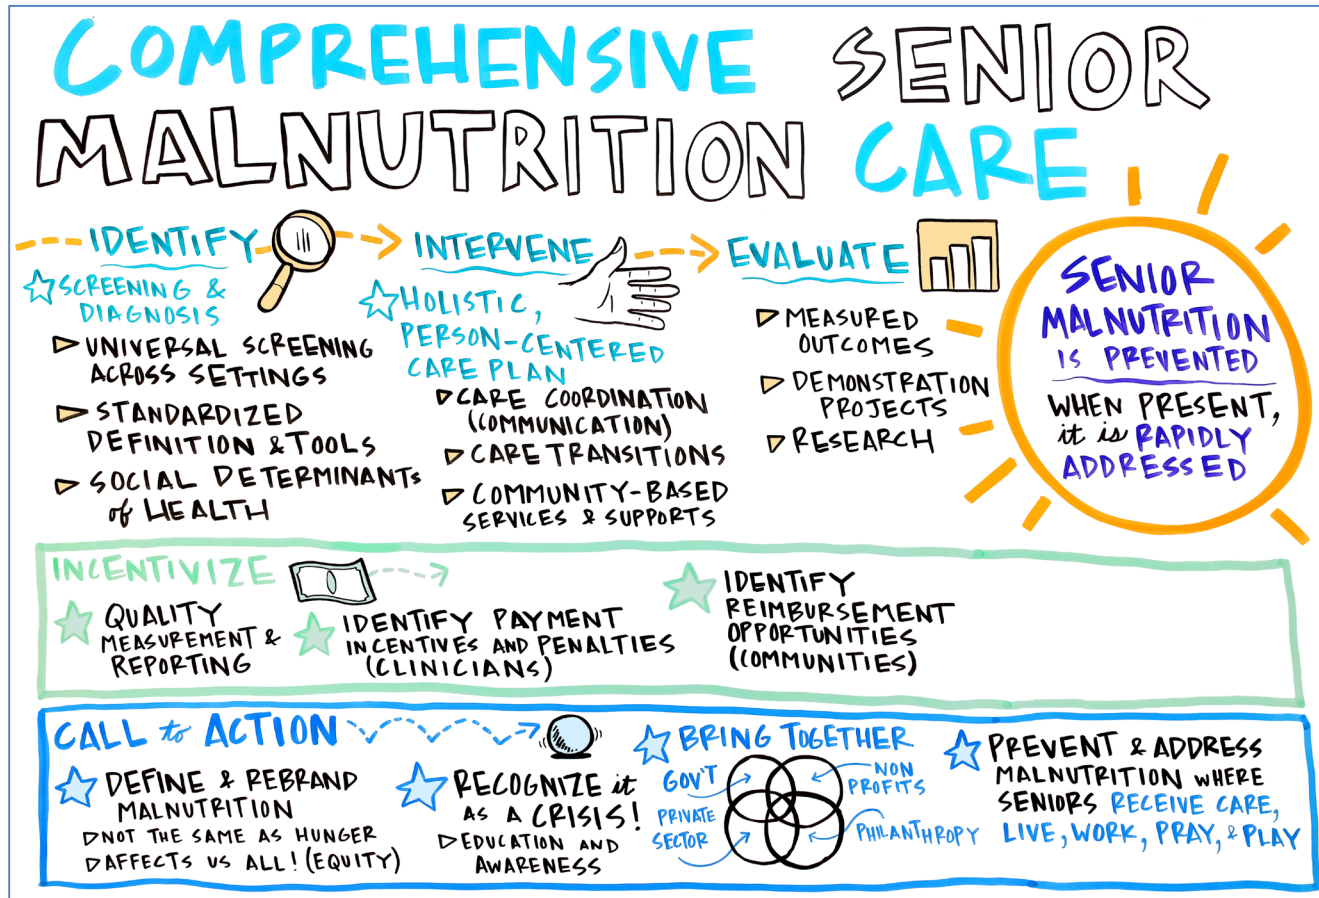 COMPREHENSIVE SENIOR
MALNUTRITION CARE
IDENTIFY
SCREENING &
DIAGNOSIS
UNIVERSAL SCREENING
ACROSS SETTINGS
STANDARDIZED
DEFINITION & TOOLS
SOCIAL DETERMINANTs
of HEALTH
INTERVENE
HOLISTIC,
PERSON-CENTERED
CARE PLAN
CARE COORDINATION
(COMMUNICATION)
CARE TRANSITIONS
COMMUNITY-BASED
SERVICES & SUPPORTS
EVALUATE
MEASURED
OUTCOMES
DEMONSTRATION
PROJECTS
RESEARCH
SENIOR
MALNUTRITION
IS PREVENTED
WHEN PRESENT,
it is RAPIDLY
ADDRESSED
INCENTIVIZE
QUALITY
MEASUREMENT &
REPORTING
IDENTIFY PAYMENT
INCENTIVES AND PENALTIES
(CLINICIANS)
IDENTIFY
REIMBURSEMENT
OPPORTUNITIES
(COMMUNITIES)
CALL to ACTION
DEFINE & REBRAND
MALNUTRITION
NOT THE SAME AS HUNGER
AFFECTS US ALL! (EQUITY)
RECOGNIZE it
AS A CRISIS!
EDUCATION AND
AWARENESS
BRING TOGETHER
GOV'T
NON
PROFITS
PRIVATE
SECTOR
PHILANTHROPY
PREVENT & ADDRESS
MALNUTRITION WHERE
SENIORS RECEIVE CARE,
LIVE, WORK, PRAY, & PLAY